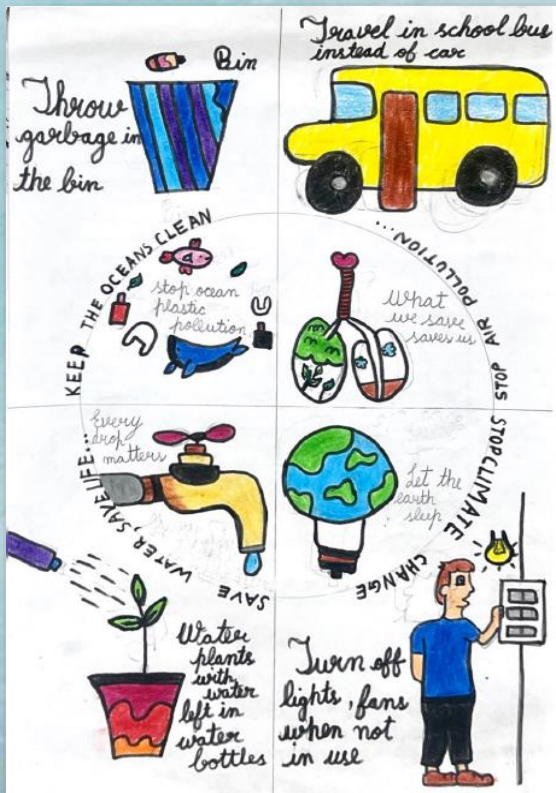 Bin
Throw
garbage in
the bin
Travel in school bus
instead of car
KEEP THE OCEANS CLEAN
stop ocean
plastic
pollution
STOP AIR POLLUTION...
What
we save
saves us
Every
drop
matters
SAVE WATER, SAVE LIFE...
Let the
earth
sleep
STOP CLIMATE CHANGE
Water
plants
with
water
left in
water
bottles
Turn off
lights, fans
when not
in use